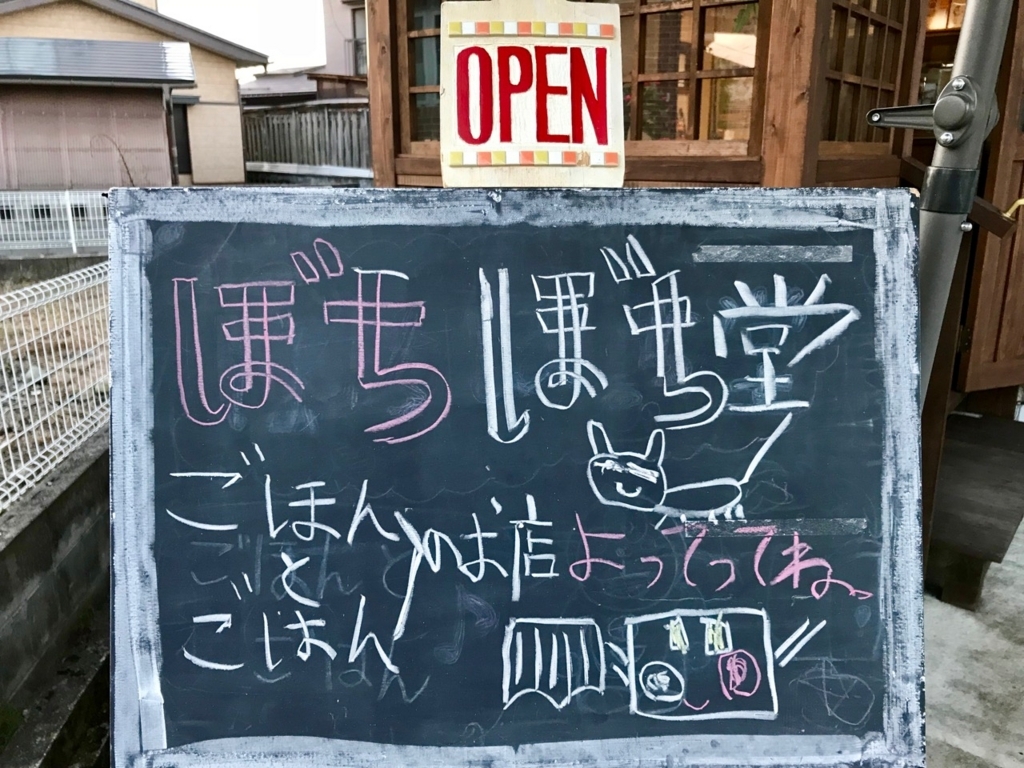 OPEN
ぼちぼち堂
ごほん
と
ごはん
のお店
よってってね